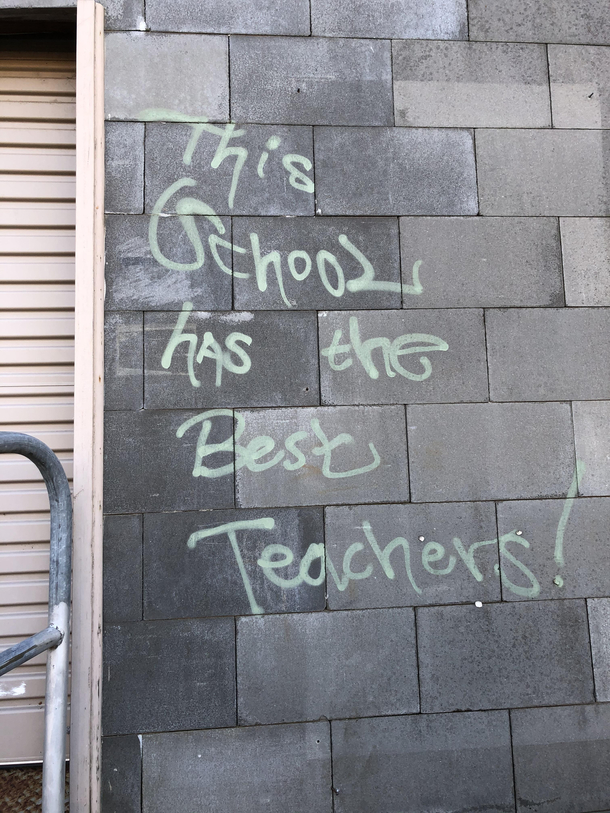 This
School
hAS the
Best
Teachers!